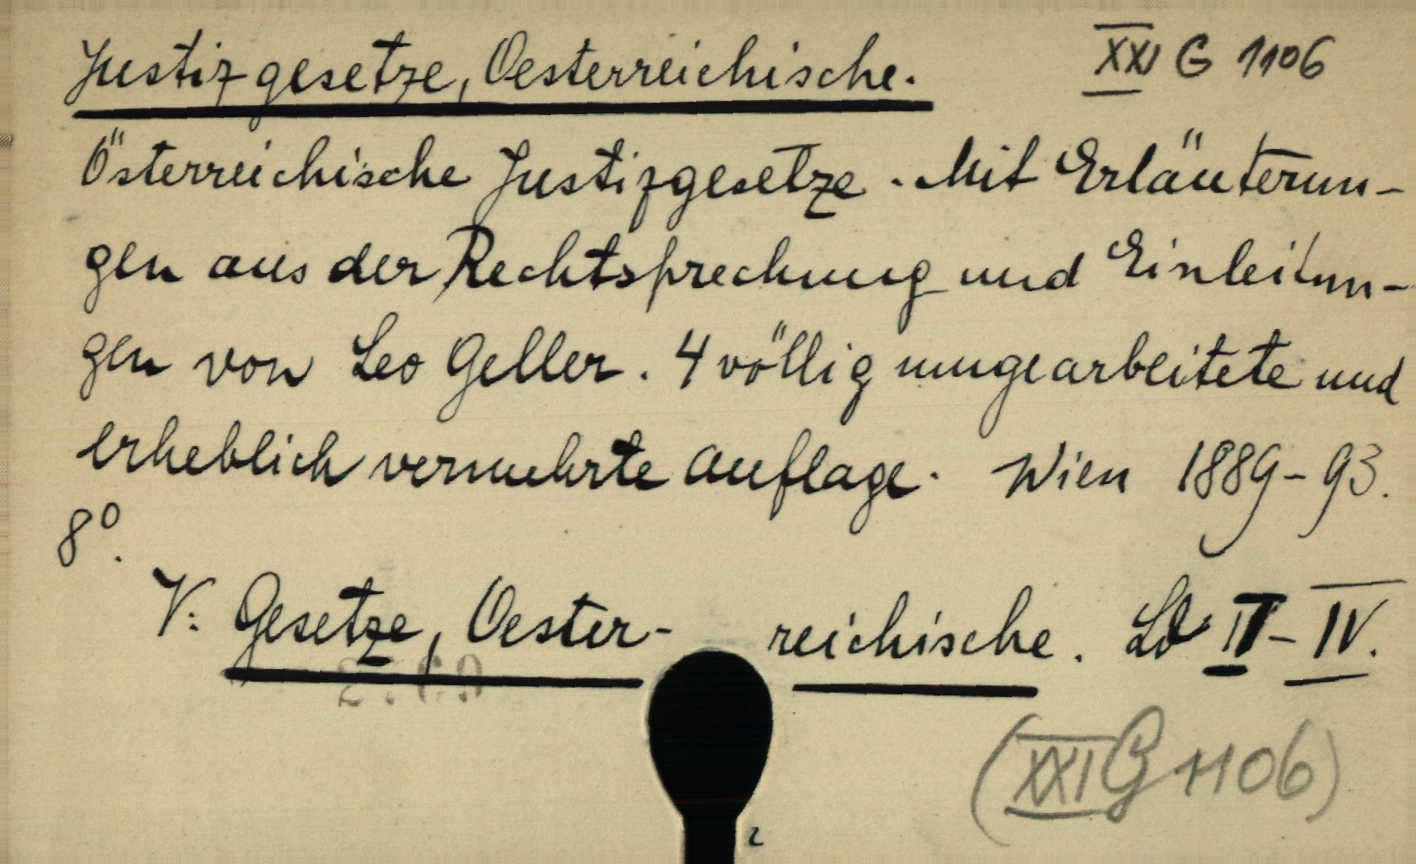 Justizgesetze, Oesterreichische. XXI G 1106
Österreichische Justizgesetze. Mit Erläuterun-
gen aus der Rechtsprechung und Einleitun-
gen von Leo Geller. 4 völlig umgearbeitete und
erheblich vermehrte Auflage. Wien 1889-93.
8°.
V: Gesetze, Oester- reichische. Ld II-IV.
(XXI G 1106)
2